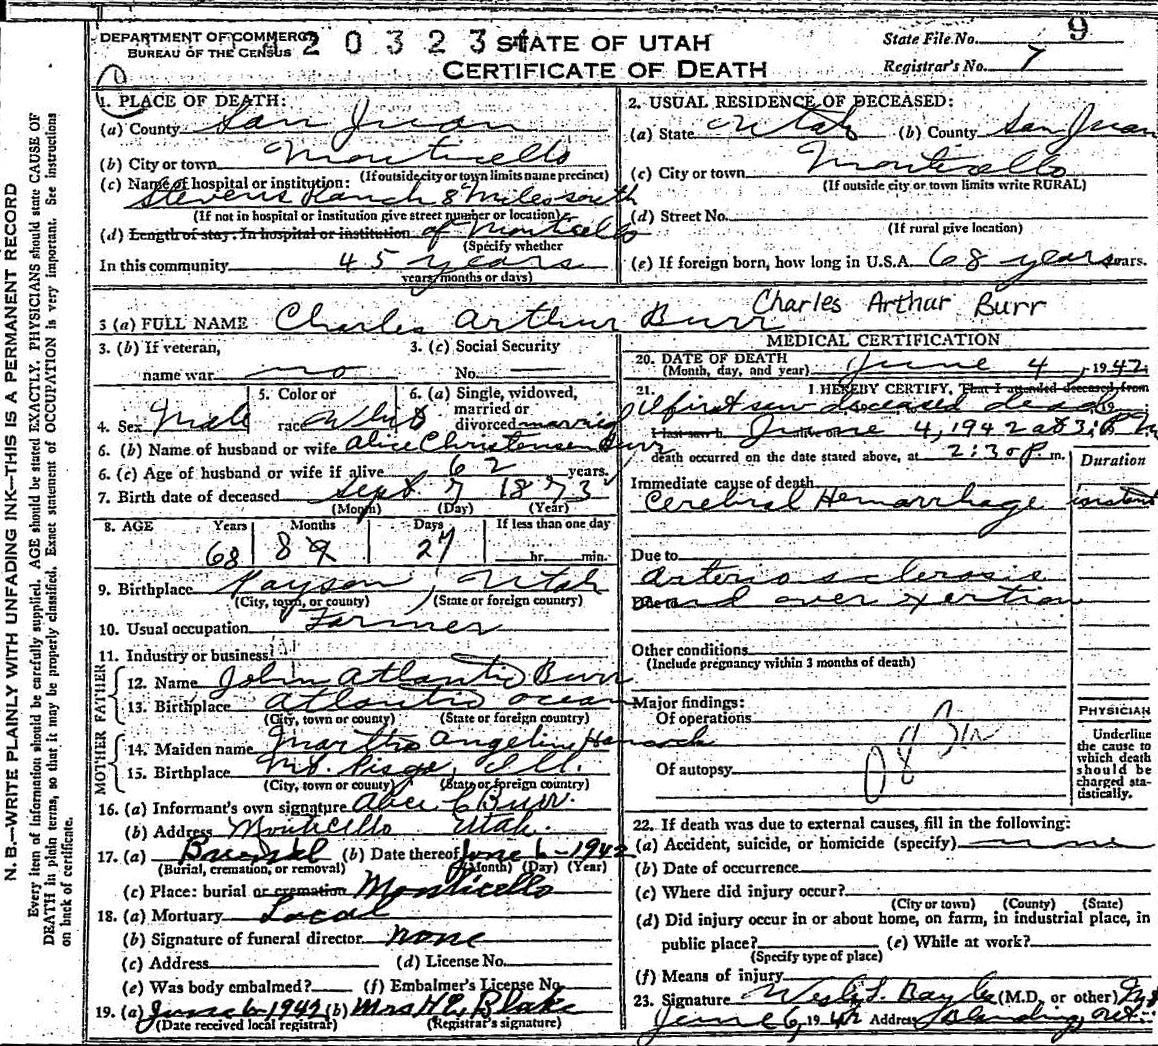 DEPARTMENT OF COMMERCE
BUREAU OF THE CENSUS
20323
STATE OF UTAH
CERTIFICATE OF DEATH
State File No. 9
Registrar's No. 7
1. PLACE OF DEATH:
(a) County San Juan
(b) City or town Monticello
(If outside city or town limits name precinct)
(c) Name of hospital or institution:
Stevens Ranch 8 Miles south
(If not in hospital or institution give street number or location)
(d) Length of stay: In hospital or institution of Monticello
(Specify whether
In this community 45 years
years, months or days)
2. USUAL RESIDENCE OF DECEASED:
(a) State Utah (b) County San Juan
(c) City or town Monticello
(If outside city or town limits write RURAL)
(d) Street No.
(If rural give location)
(e) If foreign born, how long in U.S.A. 68 years years.
3 (a) FULL NAME Charles Arthur Burr
Charles Arthur Burr
3. (b) If veteran,
name war no
3. (c) Social Security
No. —
4. Sex Male
5. Color or
race White
6. (a) Single, widowed,
married or
divorced married
6. (b) Name of husband or wife Alice Christensen Burr
6. (c) Age of husband or wife if alive 62 years.
7. Birth date of deceased Sept. 7 1873
(Month) (Day) (Year)
8. AGE Years Months Days If less than one day
68 8 9 27 hr. min.
9. Birthplace Payson, Utah
(City, town, or county) (State or foreign country)
10. Usual occupation Farmer
11. Industry or business
FATHER
12. Name John Atlantic Burr
13. Birthplace Atlantic ocean
(City, town or county) (State or foreign country)
MOTHER
14. Maiden name Martha Angeline Hancock
15. Birthplace Mt. Pisga, Ill.
(City, town or county) (State or foreign country)
16. (a) Informant's own signature Alice C Burr.
(b) Address Monticello Utah.
17. (a) Burial (b) Date thereof June 6-1942
(Burial, cremation, or removal) (Month) (Day) (Year)
(c) Place: burial or cremation Monticello
18. (a) Mortuary Local
(b) Signature of funeral director none
(c) Address (d) License No.
(e) Was body embalmed? (f) Embalmer's License No.
19. (a) June 6-1942 (b) Mrs H E Blake
(Date received local registrar) (Registrar's signature)
MEDICAL CERTIFICATION
20. DATE OF DEATH
(Month, day, and year) June 4, 1942
21. I HEREBY CERTIFY, That I attended deceased from
I first saw deceased dead
I last saw h alive on June 4, 1942 at 3:
death occurred on the date stated above, at 2:30 P. m.
Duration
Immediate cause of death
Cerebral Hemorrhage instant
Due to
Arteriosclerosis
Due to and over exertion
Other conditions
(Include pregnancy within 3 months of death)
Major findings:
Of operations
Of autopsy
PHYSICIAN
Underline
the cause to
which death
should be
charged sta-
tistically.
22. If death was due to external causes, fill in the following:
(a) Accident, suicide, or homicide (specify) none
(b) Date of occurrence
(c) Where did injury occur?
(City or town) (County) (State)
(d) Did injury occur in or about home, on farm, in industrial place, in
public place? (e) While at work?
(Specify type of place)
(f) Means of injury
23. Signature (M.D. or other)
June 6, 1942 Address Blanding, Ut.
N. B.—WRITE PLAINLY WITH UNFADING INK—THIS IS A PERMANENT RECORD
Every item of information should be carefully supplied. AGE should be stated EXACTLY. PHYSICIANS should state CAUSE OF
DEATH in plain terms, so that it may be properly classified. Exact statement of OCCUPATION is very important. See instructions
on back of certificate.